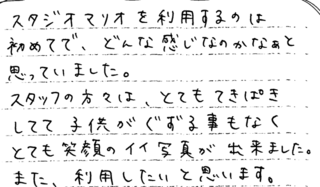 スタジオマリオを利用するのは
初めてで、どんな感じなのかなぁと
思っていました。
スタッフの方々は、とてもてきぱき
してて子供がぐずる事もなく
とても笑顔のイイ写真が出来ました。
また、利用したいと思います。